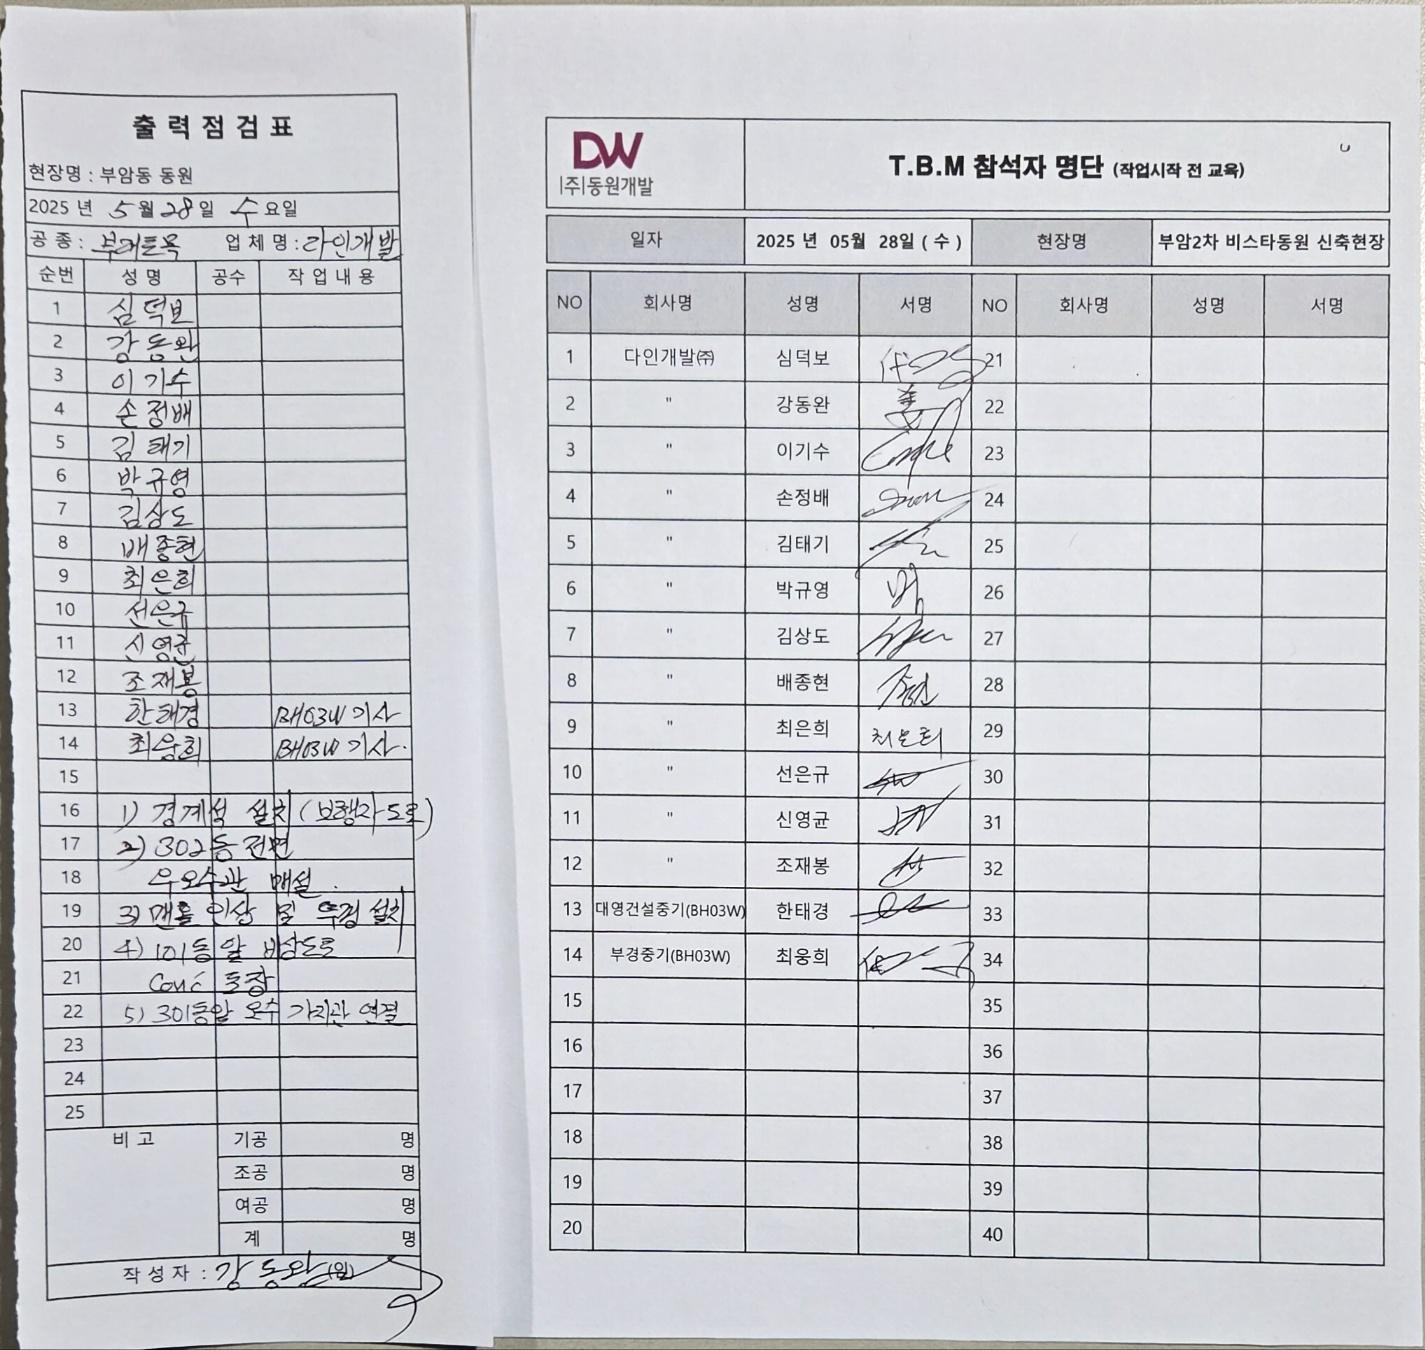 출력점검표
현장명 : 부암동 동원
2025 년 5월 28일 수요일
공 종 : 부대토목 업 체 명 : 다인개발
순번 성 명 공수 작 업 내 용
1 심덕보
2 강동완
3 이기수
4 손정배
5 김태기
6 박규영
7 김상도
8 배종현
9 최은희
10 선은규
11 신영균
12 조재봉
13 한태경 BH03W 기사
14 최웅희 BH03W 기사.
15
16 1) 경계석 설치 (보행자도로)
17 2) 302동 전면
18 우오수관 매설.
19 3) 맨홀 인상 및 뚜껑 설치
20 4) 101동 앞 비상도로
21 Con'c 포장
22 5) 301동앞 오수 가지관 연결
23
24
25
비 고 기공 명
조공 명
여공 명
계 명
작 성 자 : 강동완 (인)
DW
|주|동원개발
T.B.M 참석자 명단 (작업시작 전 교육)
일자 2025 년 05월 28일 ( 수 ) 현장명 부암2차 비스타동원 신축현장
NO 회사명 성명 서명 NO 회사명 성명 서명
1 다인개발㈜ 심덕보 21
2 " 강동완 姜 22
3 " 이기수 23
4 " 손정배 24
5 " 김태기 25
6 " 박규영 26
7 " 김상도 27
8 " 배종현 28
9 " 최은희 최은희 29
10 " 선은규 30
11 " 신영균 31
12 " 조재봉 32
13 대영건설중기(BH03W) 한태경 33
14 부경중기(BH03W) 최웅희 34
15 35
16 36
17 37
18 38
19 39
20 40